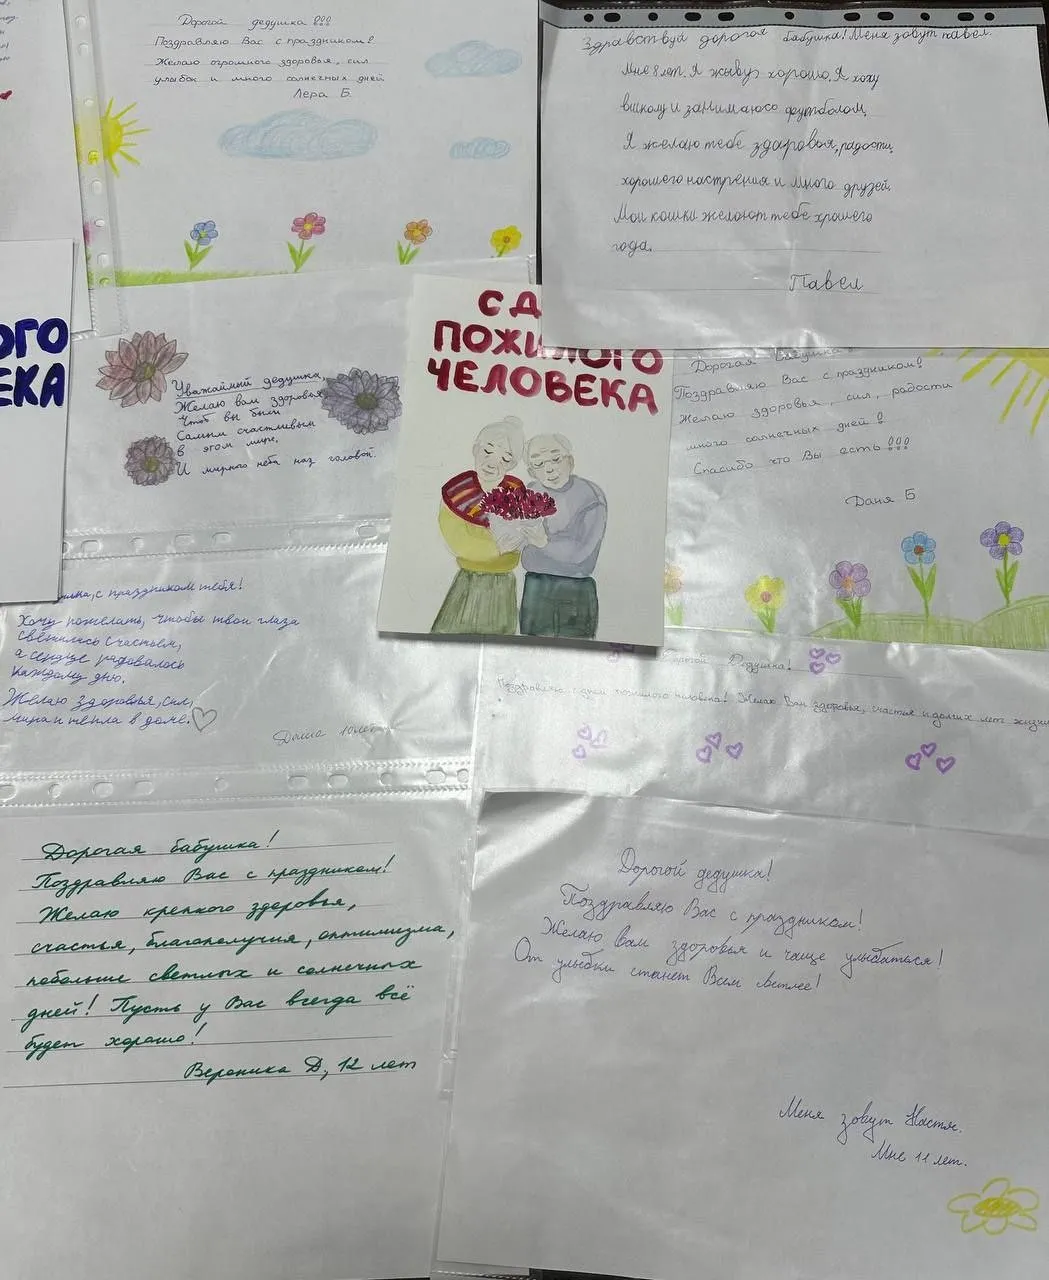 Дорогой дедушка!!!
Поздравляю Вас с праздником!
Желаю огромного здоровья, сил
улыбок и много солнечных дней
Лера Б.
Здравствуй дорогая бабушка! Меня зовут павел.
Мне 8 лет. Я жывуз хорошо. Я хожу
вшколу и занимаюсо футболом.
Я желаю тебе здоровья, радости,
хорошего настрения и много друзей.
Мои кошки желают тебе хрошего
года.
Павел
ОГО
ЕКА
С Д
ПОЖИЛОГО
ЧЕЛОВЕКА
Уважаймый дедушка,
Желаю вам здоровья
Чтоб вы были
Самым счастливым
в этом мире.
И мирного неба наз головой.
Дорогая бабушка!
Поздравляю Вас с праздником!
Желаю здоровья, сил, радости
много солнечных дней!
Спасибо что Вы есть!!!
Даня Б
с праздником тебя!
Хочу пожелать, чтобы твои глаза
светились счастьем,
а сердце радовалось
каждому дню.
Желаю здоровья, сил,
мира и тепла в доме.
Даша 10 лет
Дорогой Дедушка!
Поздравляю с днём пожилого человека! Желаю Вам здоровья, счастья и долгих лет жизни
Дорогая бабушка!
Поздравляю Вас с праздником!
Желаю крепкого здоровья,
счастья, благополучия, оптимизма,
побольше светлых и солнечных
дней! Пусть у Вас всегда всё
будет хорошо!
Вероника Д, 12 лет
Дорогой дедушка!
Поздравляю Вас с праздником!
Желаю Вам здоровья и чаще улыбаться!
От улыбки станет Всем теплее!
Меня зовут Настя.
Мне 11 лет.